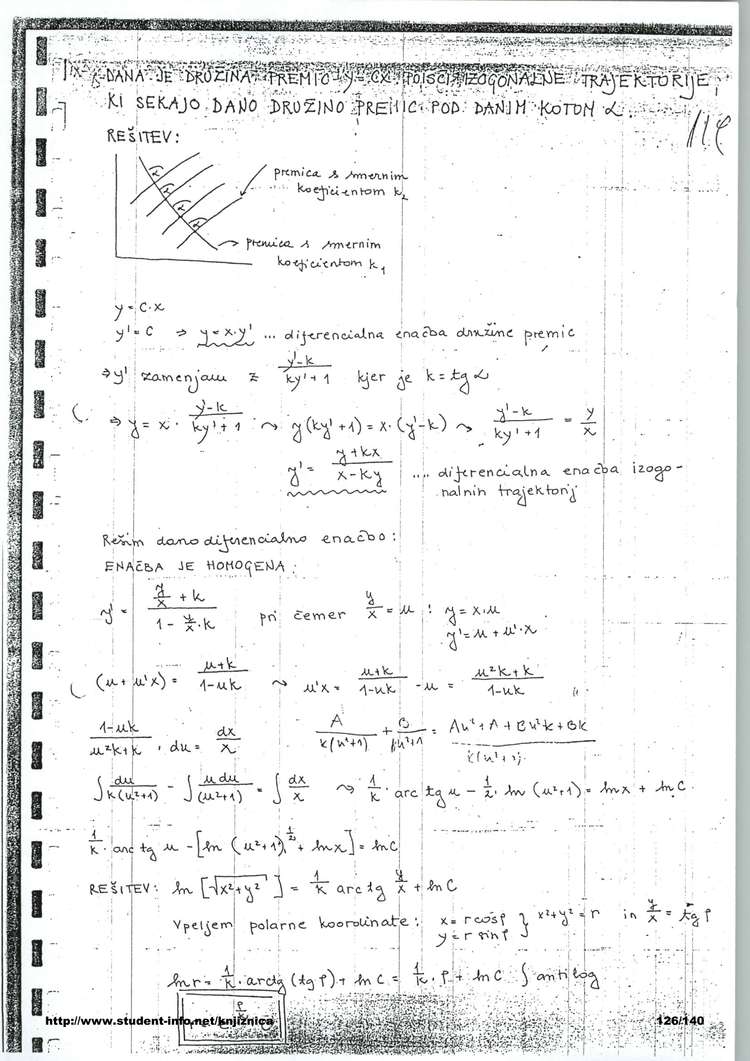 DANA JE DRUŽINA PREMIC y = CX. POIŠČI IZOGONALNE TRAJEKTORIJE,
KI SEKAJO DANO DRUŽINO PREMIC POD DANIM KOTOM α.
REŠITEV:
premica s smernim
koeficientom k₂
α
α
α
α
premica s smernim
koeficientom k₁
y = C·x
y' = C ⇒ y = x·y' ... diferencialna enačba družine premic
⇒ y' zamenjam z (y'-k)/(ky'+1) kjer je k = tg α
⇒ y = x · (y'-k)/(ky'+1) ⤳ y(ky'+1) = x·(y'-k) ⤳ (y'-k)/(ky'+1) = y/x
y' = (y+kx)/(x-ky) .... diferencialna enačba izogo-
nalnih trajektorij
Rešim dano diferencialno enačbo:
ENAČBA JE HOMOGENA:
y' = (y/x + k)/(1 - y/x·k) pri čemer y/x = u : y = x·u
y' = u + u'·x
(u + u'x) = (u+k)/(1-uk) ⤳ u'x = (u+k)/(1-uk) - u = (u²k+k)/(1-uk)
(1-uk)/(u²k+k) · du = dx/x A/(k(u²+1)) + B/(u²+1) = (Au²+A+Bu²k+Bk)/(k(u²+1))
∫ du/(k(u²+1)) - ∫ u du/(u²+1) = ∫ dx/x ⤳ 1/k · arc tg u - 1/2 · ln (u²+1) = ln x + ln C
1/k · arc tg u - [ln (u²+1)^(1/2) + ln x] = ln C
REŠITEV: ln [√(x²+y²)] = 1/k arc tg y/x + ln C
Vpeljem polarne koordinate: x = r cos φ } x²+y² = r in y/x = tg φ
y = r sin φ
ln r = 1/k · arctg (tg φ) + ln C = 1/k · φ + ln C ∫ antilog
http://www.student-info.net/knjiznica
126/140